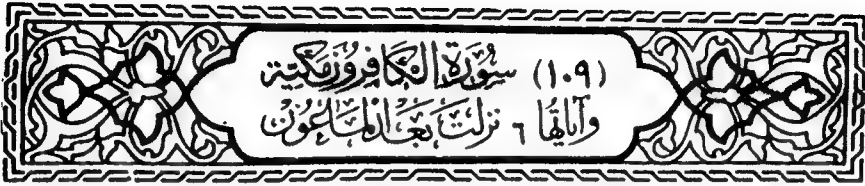 (١٠٩) سُورَةُ الكَافِرُونَ مَكِّيَّة
وَآيَاتُهَا ٦ نَزَلَتْ بَعْدَ المَاعُون